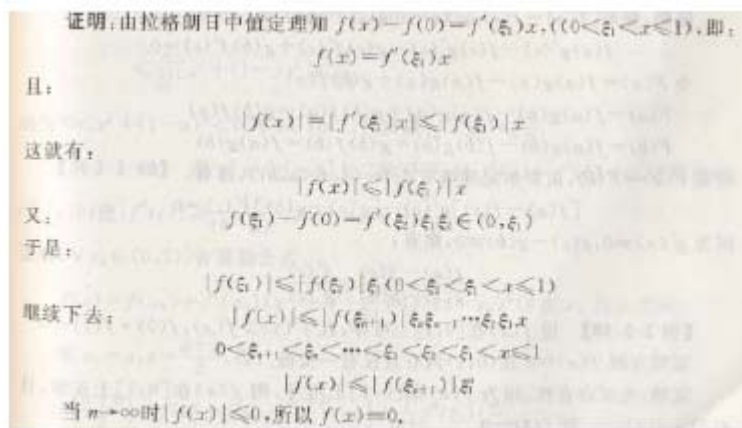 证明:由拉格朗日中值定理知 f(x)-f(0)=f′(ξ₁)x,((0<ξ₁<x≤1),即:
f(x)=f′(ξ₁)x
且:
|f(x)|=|f′(ξ₁)x|≤|f(ξ₁)|x
这就有:
|f(x)|≤|f(ξ₁)|x
又: f(ξ₁)-f(0)=f′(ξ₂)ξ₁ξ₂∈(0,ξ₁)
于是:
|f(ξ₁)|≤|f(ξ₂)|ξ₁(0<ξ₂<ξ₁<x≤1)
继续下去: |f(x)|≤|f(ξₙ₊₁)|ξₙξₙ₋₁…ξ₂ξ₁x
0<ξₙ₊₁≤ξₙ<…≤ξ₃<ξ₂<ξ₁<x≤1
|f(x)|≤|f(ξₙ₊₁)|ξ₁ⁿ
当 n→∞时|f(x)|≤0,所以 f(x)=0,